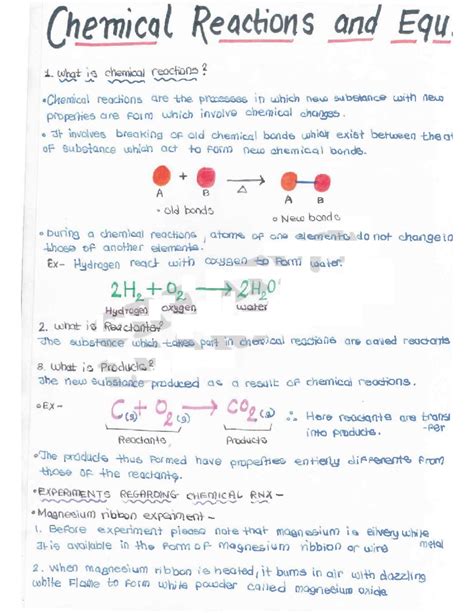 Chemical Reactions and Equ.
1. What is chemical reactions?
• Chemical reactions are the processes in which new substance with new
properties are form which involve chemical changes.
• It involves breaking of old chemical bonds which exist between the at
of substance which act to form new chemical bonds.
+ Δ
A B A B
• old bonds • New bonds
• During a chemical reactions, atoms of one elements do not change in
those of another elements.
Ex- Hydrogen react with oxygen to form water.
2H₂ + O₂ → 2H₂O
Hydrogen oxygen water
2. What is Reactants?
The substance which takes part in chemical reactions are called reactants
3. What is Products?
The new substance produced as a result of chemical reactions.
• Ex- C(s) + O₂(g) → CO₂(g) ∴ Here reactants are transf
-per
into products.
Reactants Products
• The products thus formed have properties entirely differents from
those of the reactants.
• EXPERIMENTS REGARDING CHEMICAL RNX-
• Magnesium ribbon experiment-
1. Before experiment please note that magnesium is silvery white
metal
It is available in the form of magnesium ribbion or wire
2. When magnesium ribbon is heated, it burns in air with dazzling
white flame to form white powder called magnesium oxide